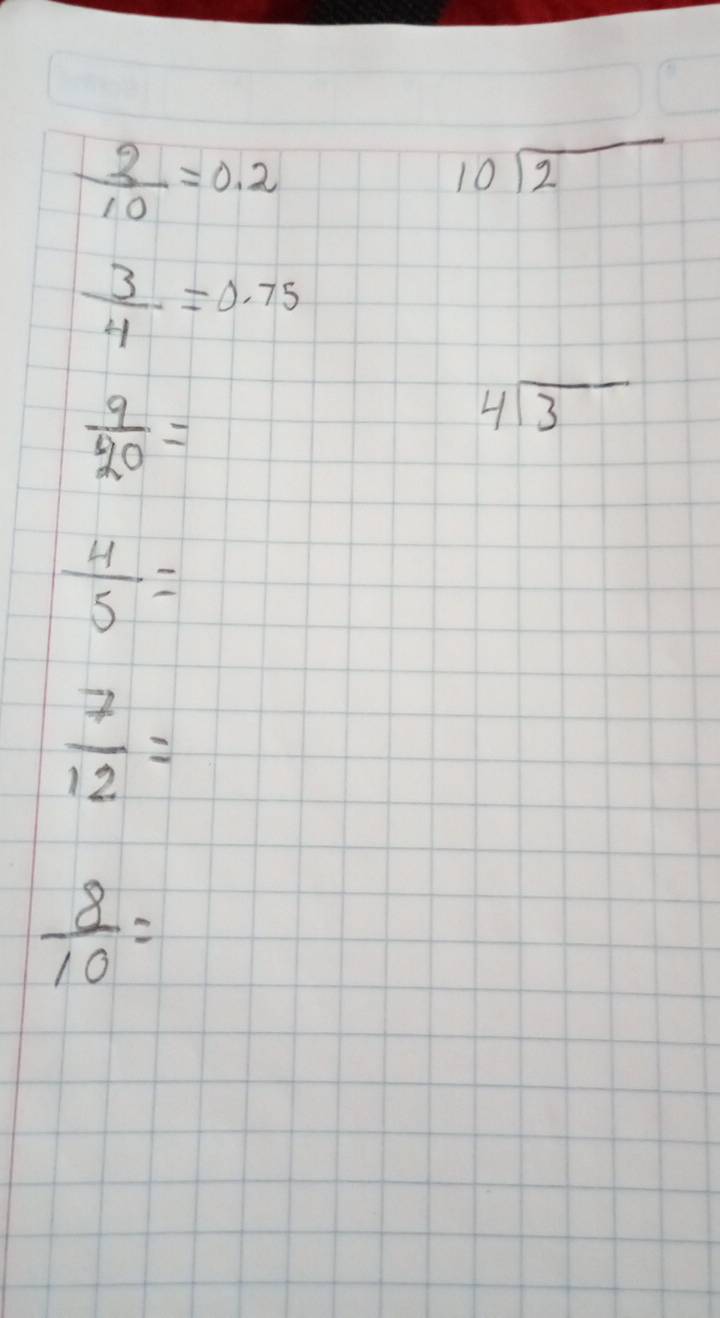 2/10 = 0.2
10 ⟌ 2
3/4 = 0.75
4 ⟌ 3
9/20 =
4/5 =
7/12 =
8/10 =